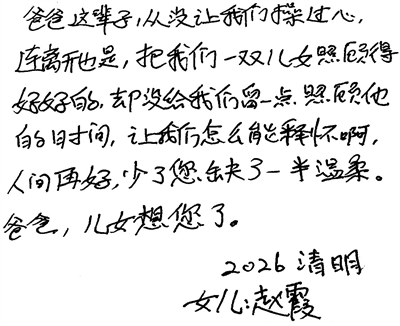 爸爸这辈子,从没让我们操过心,
连离开也是,把我们一双儿女照顾得
好好的,却没给我们留一点照顾他
的时间,让我们怎么能释怀啊,
人间再好,少了您缺了一半温柔。
爸爸,儿女想您了。
2026 清明
女儿:赵霞